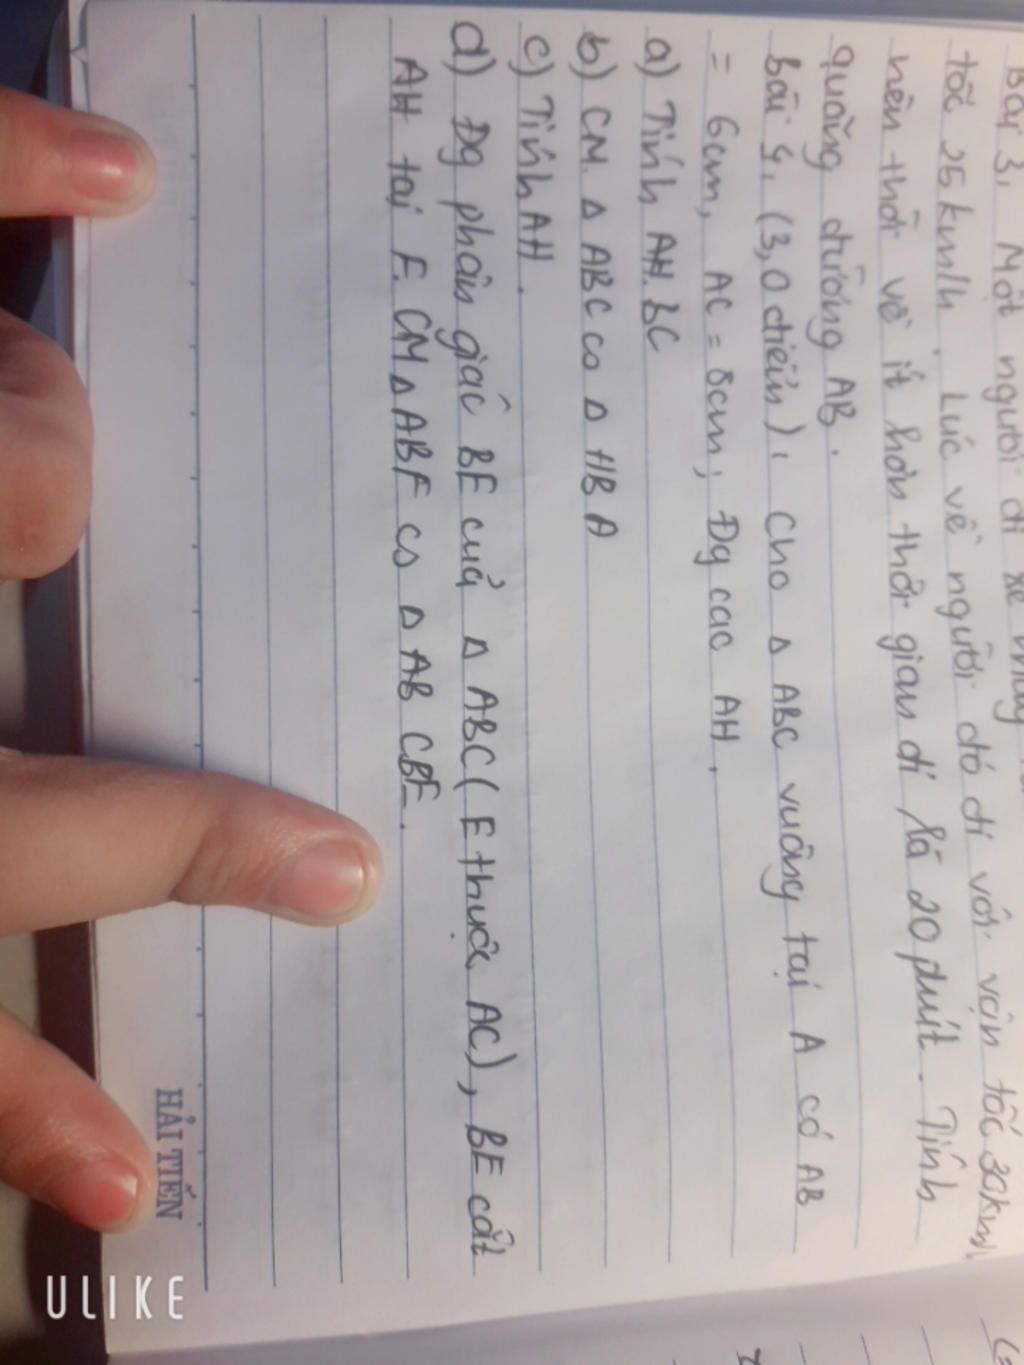 Bài 3, Một người đi xe
tốc 25 km/h. Lúc về người đó đi với vận tốc 30km/h
nên thời về ít hơn thời gian đi là 20 phút. Tính
quãng đường AB.
bài 4, (3,0 điểm), cho Δ ABC vuông tại A có AB
= 6cm, AC = 8cm, Đg cac AH.
a) Tính AH. BC
b) CM. Δ ABC ∽ Δ HBA
c) Tính AH.
d) Đg phân giác BE của Δ ABC (E thuộc AC), BE cắt
AH tại F. CM Δ ABF ∽ Δ AB CBE.
HẢI TIẾN
ULIKE